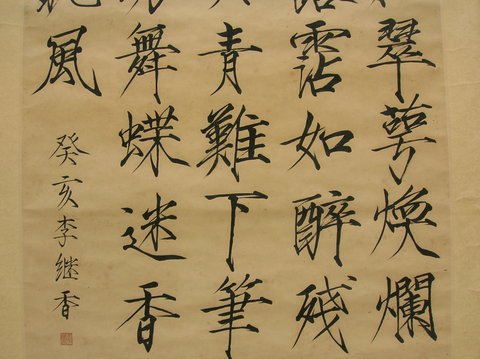 翠萼煥爛
霑如醉殘
青難下筆
舞蝶迷香
風
癸亥李继香